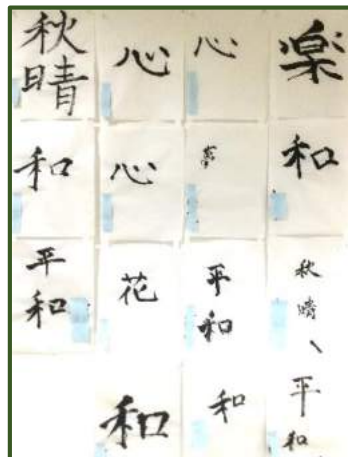 秋晴
心
心
楽
和
心
和
平和
花
平和
秋晴
和
和
平和